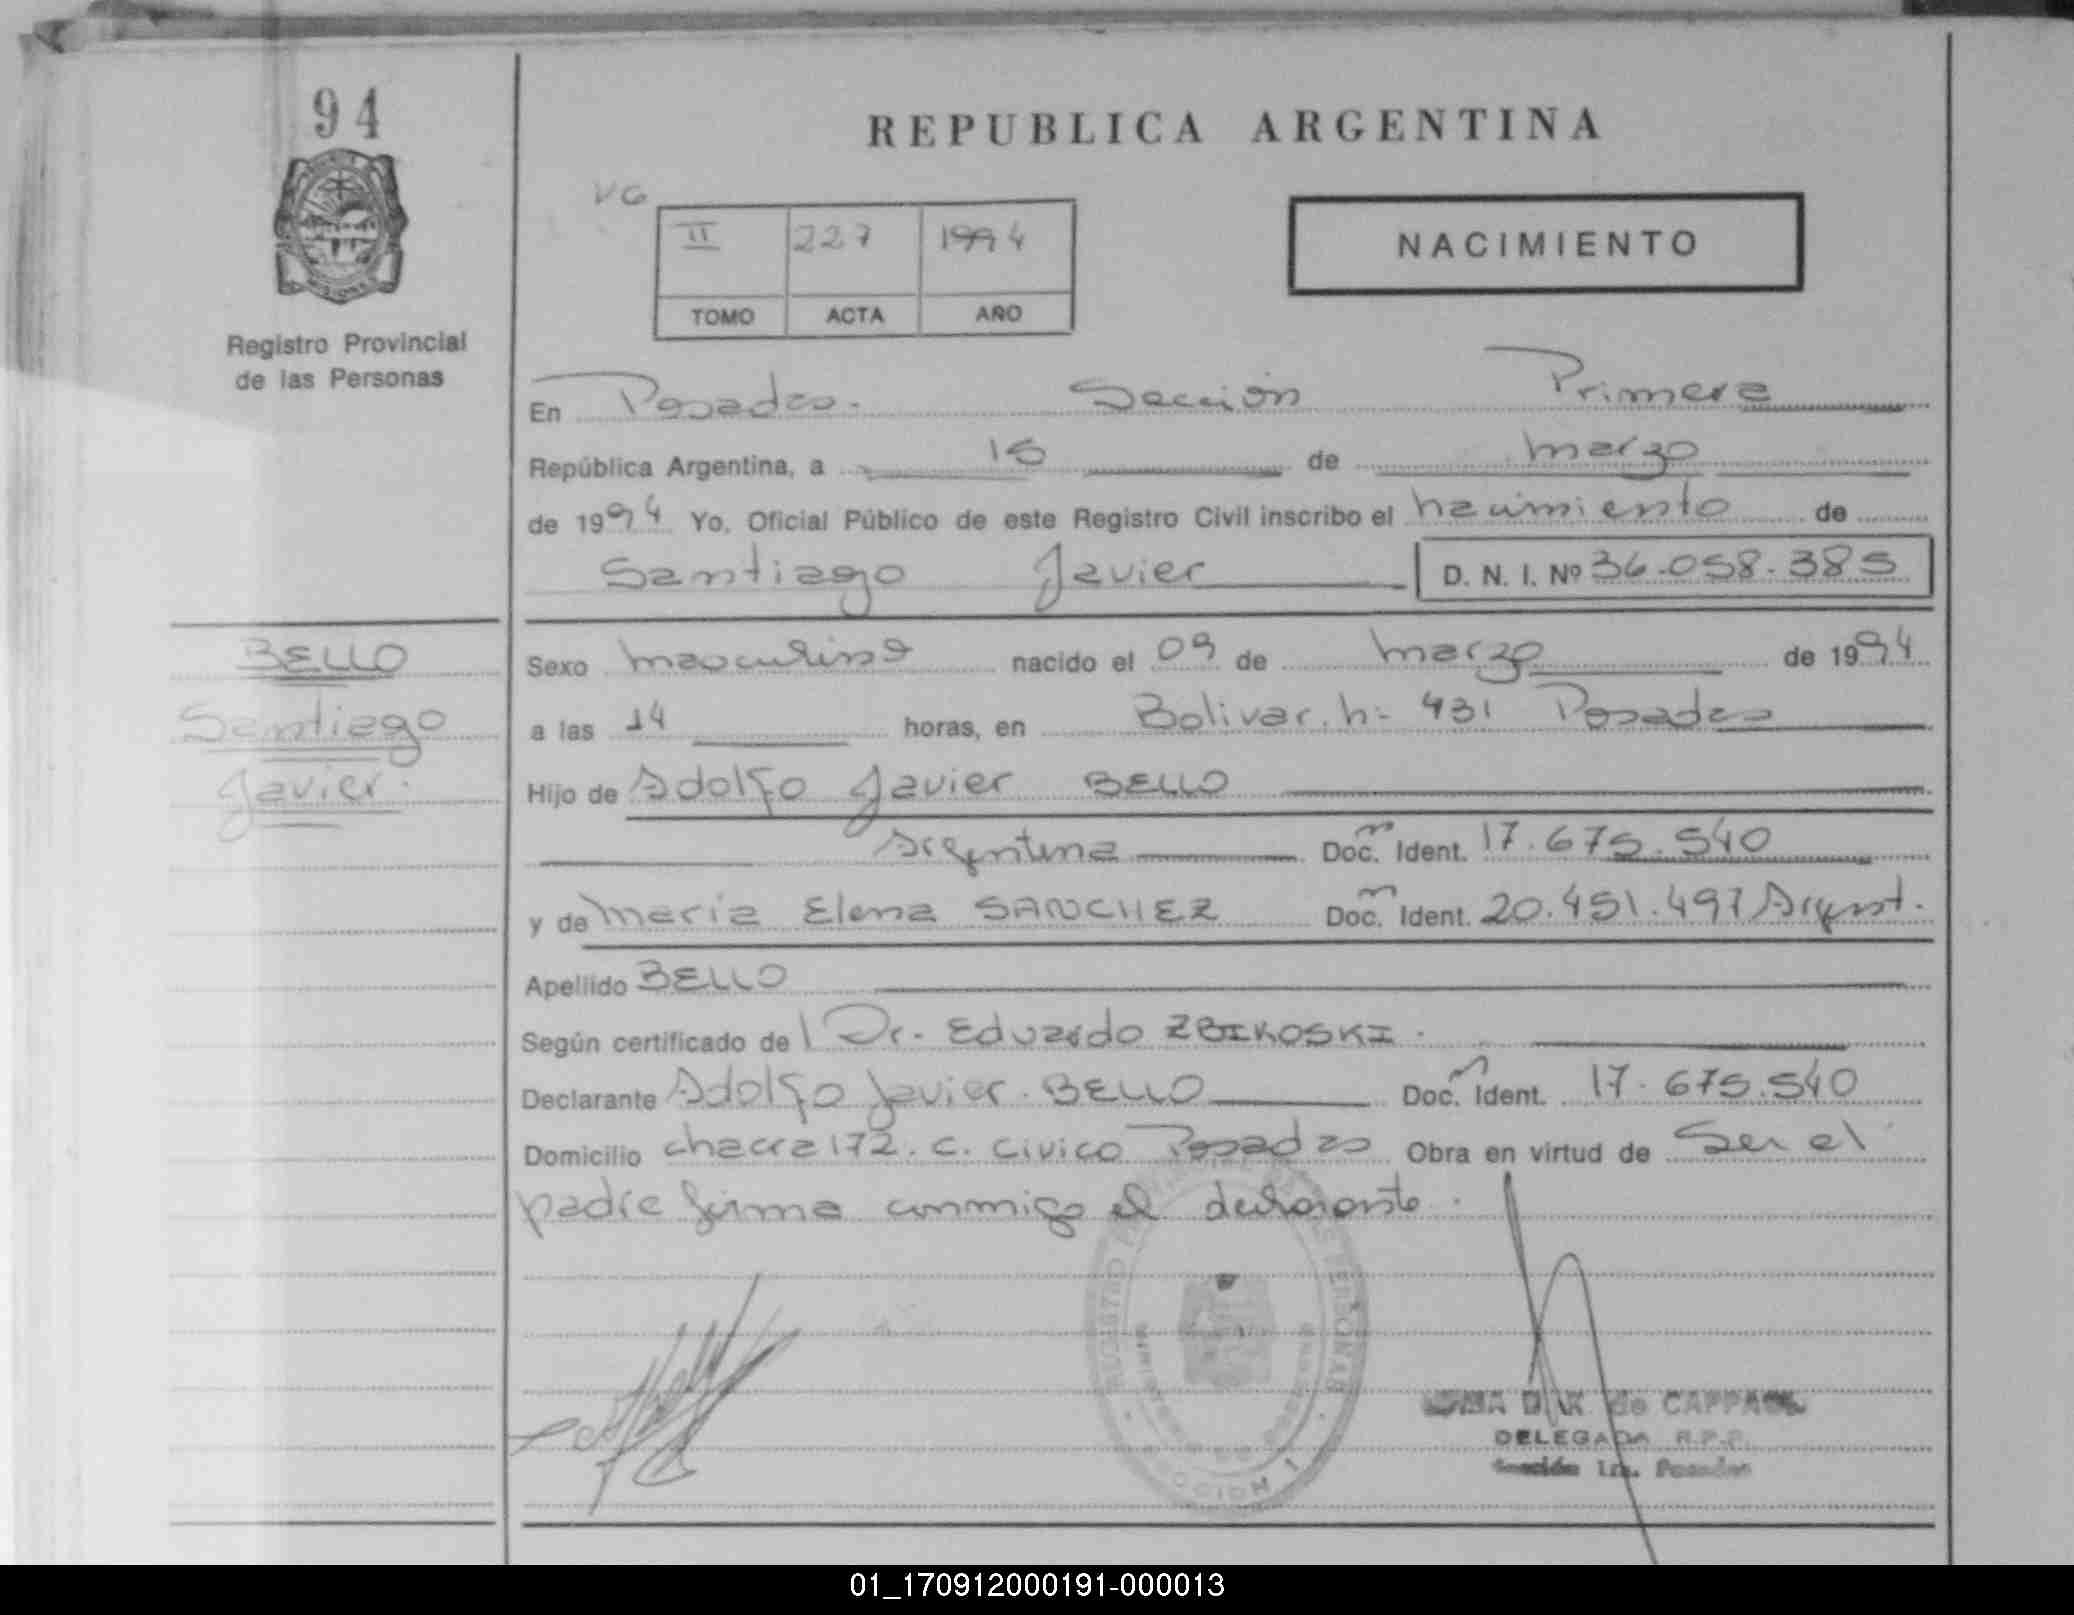 94
REPUBLICA ARGENTINA
VG
II 227 1994
TOMO ACTA AÑO
NACIMIENTO
Registro Provincial
de las Personas
En Posadas. Sección Primera
República Argentina, a 15 de marzo
de 1994 Yo, Oficial Público de este Registro Civil inscribo el nacimiento de
Santiago Javier D. N. I. Nº 36.058.385
BELLO
Santiago
Javier.
Sexo masculino nacido el 09 de marzo de 1994
a las 14 horas, en Bolivar. n- 431 Posadas
Hijo de Adolfo Javier BELLO
Argentina Doc. Ident. 17.675.540
y de Maria Elena SANCHEZ Doc. Ident. 20.451.497 Argent.
Apellido BELLO
Según certificado de l Dr. Eduardo ZBIKOSKI.
Declarante Adolfo Javier. BELLO Doc. Ident. 17.675.540
Domicilio chacra 172. C. Civico Posadas Obra en virtud de Ser el
padre firma conmigo el declarante.
REGISTRO PERSONAS
SECCION 1
de CAPPA
DELEGADA R.P.P.
Sección 1ra. Posadas
01_170912000191-000013